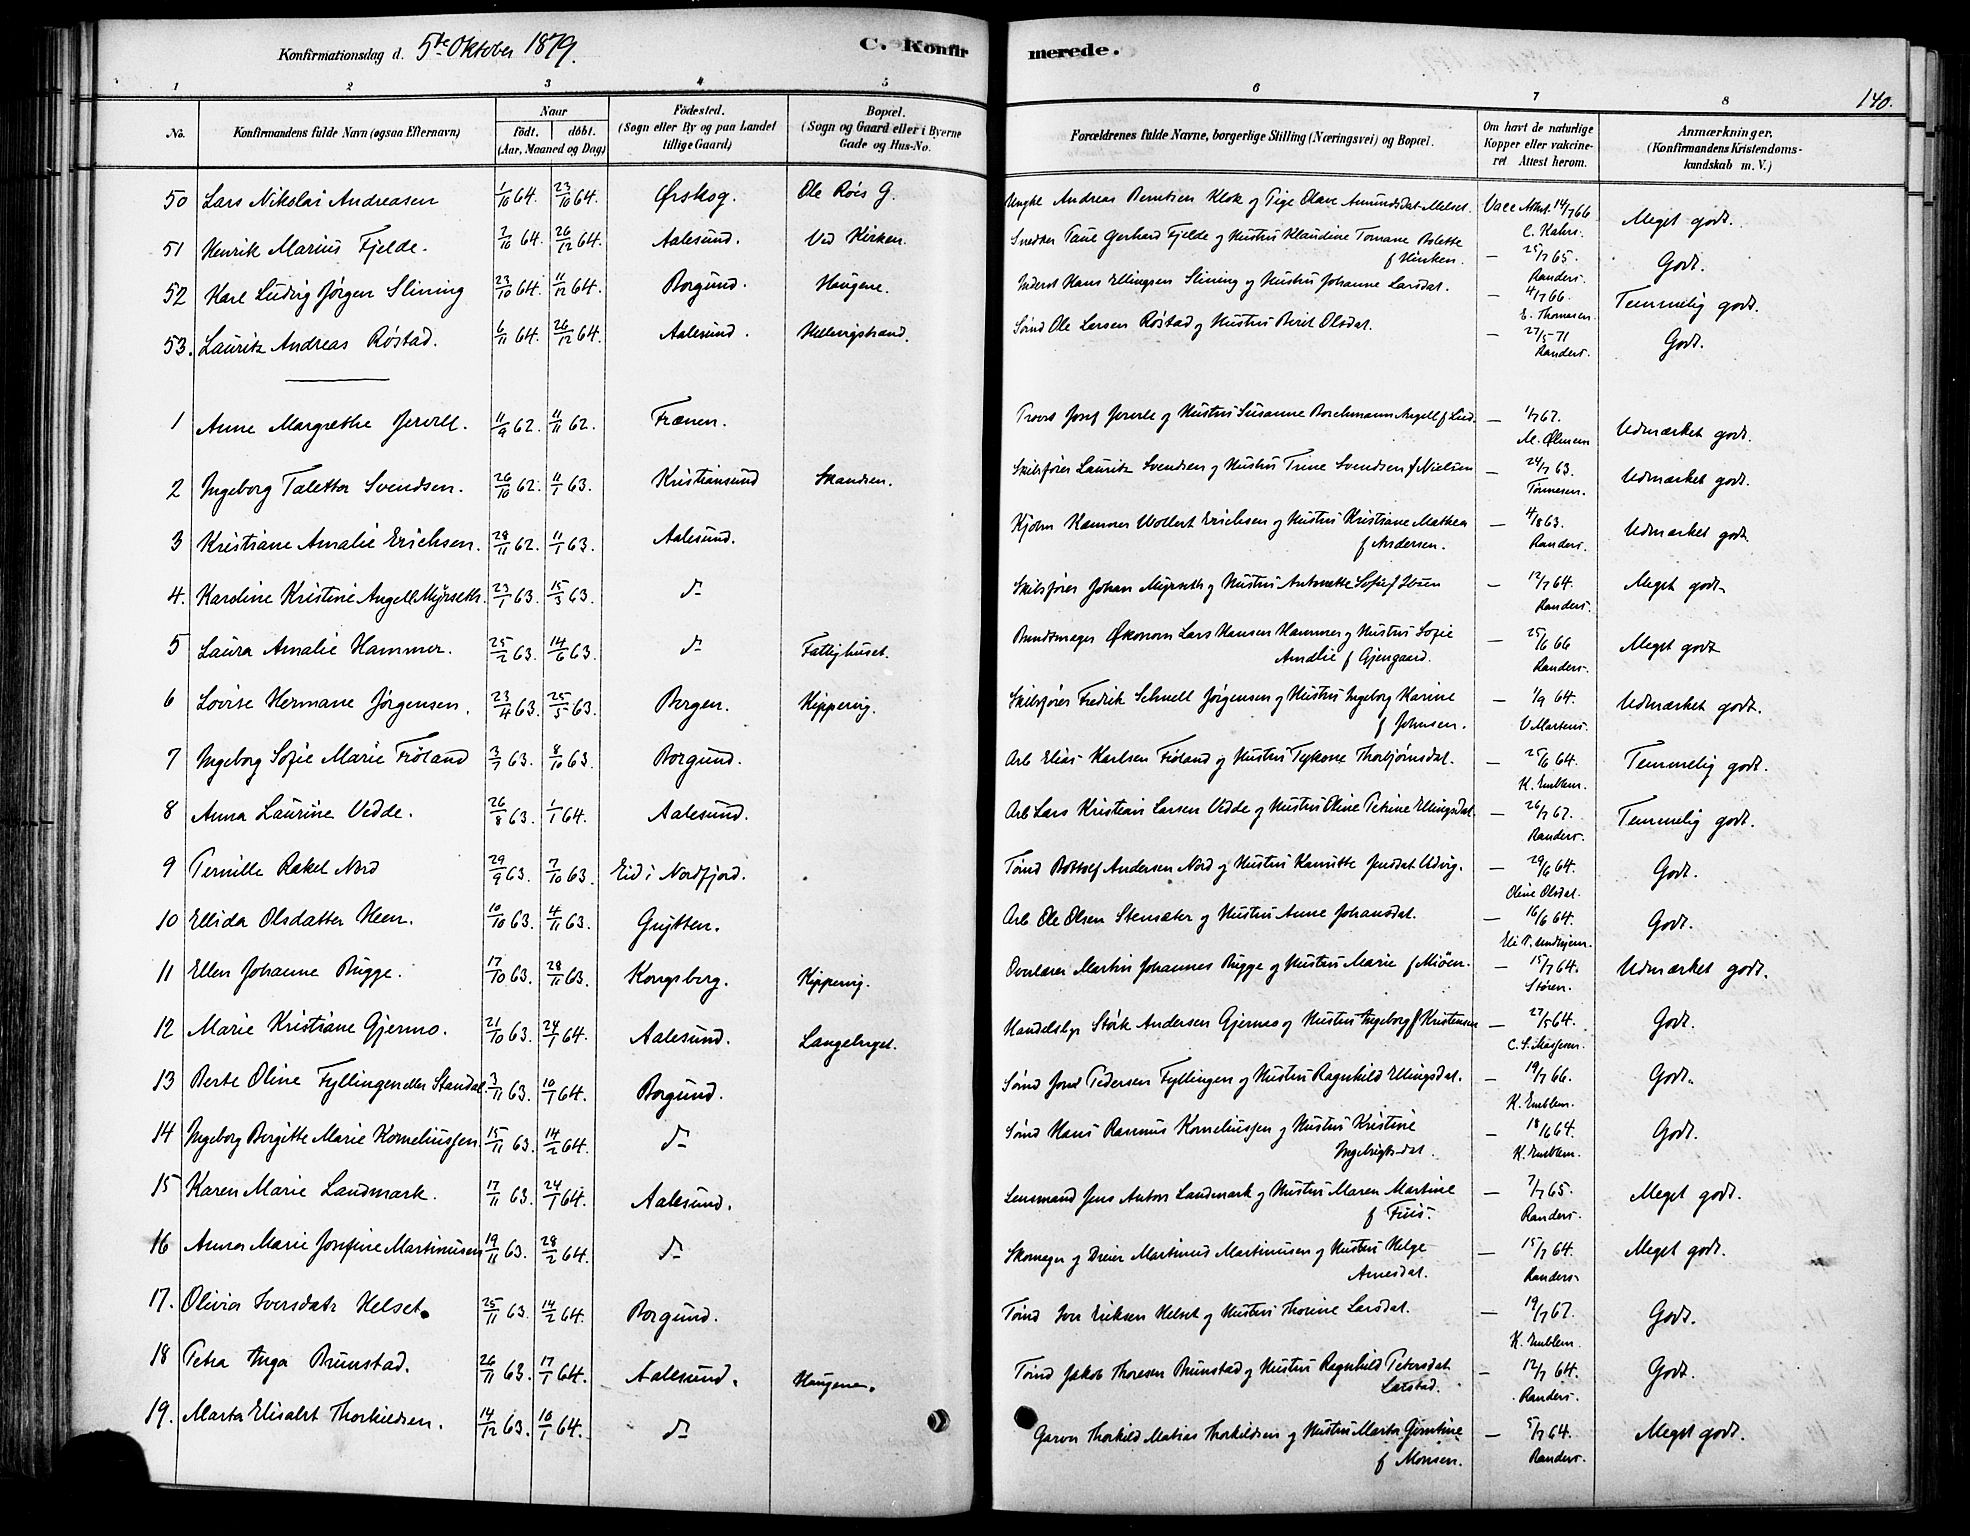 Konfirmationsdag d. 5te Oktober 1879. C. Konfirmerede. 140.
1 2 3 4 5 6 7 8
No. Konfirmandens fulde Navn (ogsaa Efternavn) Naar født. døbt. (Aar, Maaned og Dag) Fødested. (Sogn eller By og paa Landet tillige Gaard) Bopæl. (Sogn og Gaard eller i Byerne Gade og Hus-No. Forældrenes fulde Navne, borgerlige Stilling (Næringsvei) og Bopæl. Om havt de naturlige Kopper eller vakcineret Attest herom. Anmærkninger. (Konfirmandens Kristendomskundskab m. V.)
50 Lars Nikolai Andreasen 1/10 64. 23/10 64. Ørskog. Ole Røis G. Ungkl Andreas Berntsen Klok og Pige Olave Amundsdat Melset. Vacc Attest 14/7 66 C. Kahrs. Meget godt.
51 Henrik Marius Fjelde. 7/10 64. 26/12 64. Aalesund. Ved Kirken. Snedker Gerhard Fjelde og Hustru Klaudine Tomane Bolette f — 25/7 65. Randers. Godt.
52 Karl Ludvig Jørgen Slining 23/10 64. 11/12 64. Borgund. Haugene. Inderst Hans Ellingsen Slining og Hustru Johanne Larsdat. — 4/7 66. E. Thomesen. Temmelig godt.
53. Lauritz Andreas Røstad. 6/11 64. 26/12 64. Aalesund. Hellevigstrand. Ole Larsen Røstad og Hustru Beret Olsdat. — 27/5 71 Randers. Godt.
1 Anne Margrethe Jervell. 11/9 62. 11/11 62. Frænen. Provst Josef Jervell og Hustru Susanne Borchmann Angell f — 1/7 67. M. Ølmem Udmærket godt.
2 Ingeborg Taletta Svendsen. 26/10 62. 11/1 63. Kristiansund Skandsen. Skibsfører Lauritz Svendsen og Hustru Trine Svendsen f Nielsen — 24/7 63. Tønnesen. Udmærket godt.
3 Kristiane Amalie Erichsen. 28/11 62. 11/1 63. Aalesund. Kjøbm Hammer Wollert Erichsen og Hustru Kristiane Mathea f Andersen. — 4/8 63. Randers. Udmærket godt.
4. Karoline Kristine Angell Myrseth. 23/1 63. 15/3 63. do Skibsfører Johan Myrseth og Hustru Antonette Sofie f Ibsen — 12/7 64. Randers. Meget godt.
5 Laura Amalie Hammer. 25/2 63. 14/6 63. do Fattighuset. Bundtmager Økonom Lars Hansen Hammer og Hustru Sofie Amalie f Gjengaard. — 25/6 66 Randers. Meget godt
6 Lovise Hermane Jørgensen. 23/4 63. 25/5 63. Bergen. Kippervig. Skibsfører Fredrik Schnell Jørgensen og Hustru Ingeborg Karine f Johnsen. — 1/9 64. V. Martens. Udmærket godt.
7 Ingeborg Sofie Marie Frøland 3/7 63. 8/10 63. Borgund. Arb Elias Karlsen Frøland og Hustru Thorbjørnsdat. — 25/6 64. K. Emblem. Temmelig godt.
8 Anna Laurine Vedde. 26/8 63. 1/1 64. Aalesund. Arb Lars Kristian Larsen Vedde og Hustru Oline Petrine Ellingsdat. — 26/7 67. Randers. Temmelig godt.
9 Pernille Rakel Nord 29/9 63. 7/10 63. Eid i Nordfjord. Tømd Bottolf Andersen Nord og Hustru Hanitte Jensdat Udvig. — 29/6 64. Oline Olsdat. Godt.
10 Ellida Olsdatter Heen. 10/10 63. 4/11 63. Grytten. Arb Ole Olsen Stensæter og Hustru Anne Johansdat. — 16/6 64. Godt.
11 Ellen Johanne Bugge. 17/10 63. 28/11 63. Kongsberg. Kippervig. Overlærer Martin Johannes Bugge og Hustru Marie f Miöen. — 15/7 64. Støren. Udmærket godt.
12 Marie Kristiane Gjermo. 21/10 63. 24/1 64. Aalesund. Langeberget. Handelsbgr Størk Andersen Gjermo og Hustru Ingeborg f Kristensen — 27/5 64. Godt.
13 Berte Oline Fyllingen eller Standal. 3/11 63. 10/1 64. Borgund. Jond Pedersen Fyllingen og Hustru Ragnhild Ellingsdat. — 19/7 66. K. Emblem. Godt.
14 Ingeborg Bergitte Marie Korneliussen. 15/11 63. 14/2 64. do Hans Rasmus Korneliussen og Hustru Kristine Ingebrigtsdat. — 18/6 64. K. Emblem. Godt.
15 Karen Marie Landmark. 17/11 63. 24/1 64. Aalesund. Lensmand Jens Anton Landmark og Hustru Maren Martine f Friis. — 7/7 65. Randers. Meget godt.
16 Anna Marie Josefine Martinusen 19/11 63. 28/2 64. do Skomager og Dreier Martinus Martinusen og Hustru Helge Arnesdat. — 15/7 64. Randers Meget godt.
17. Olivia Iversdatr Helset. 25/11 63. 14/2 64. Borgund. Tømd Iver Eriksen Helset og Hustru Thorine Larsdat. — 19/7 67. K. Emblem. Godt.
18 Petra Inga Brunstad. 26/11 63. 17/1 64. Aalesund. Haugene. Tømd Jakob Thoresen Brunstad og Hustru Ragnhild Petersdat Larstad. — 12/7 64. Randers. Godt.
19. Marta Elisabet Thorkildsen. 14/12 63. 10/1 64. do Garver Thorkild Matias Thorkildsen og Hustru Marta f Monsen. — 5/7 64. Randers. Meget godt.